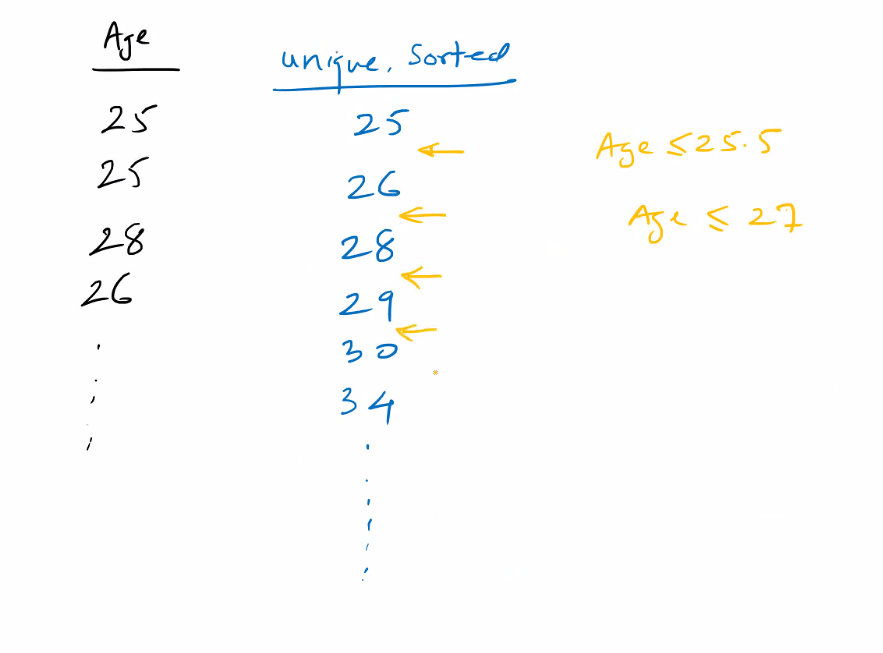 Age
25
25
28
26
unique, Sorted
25
26
28
29
30
34
Age ≤ 25.5
Age ≤ 27